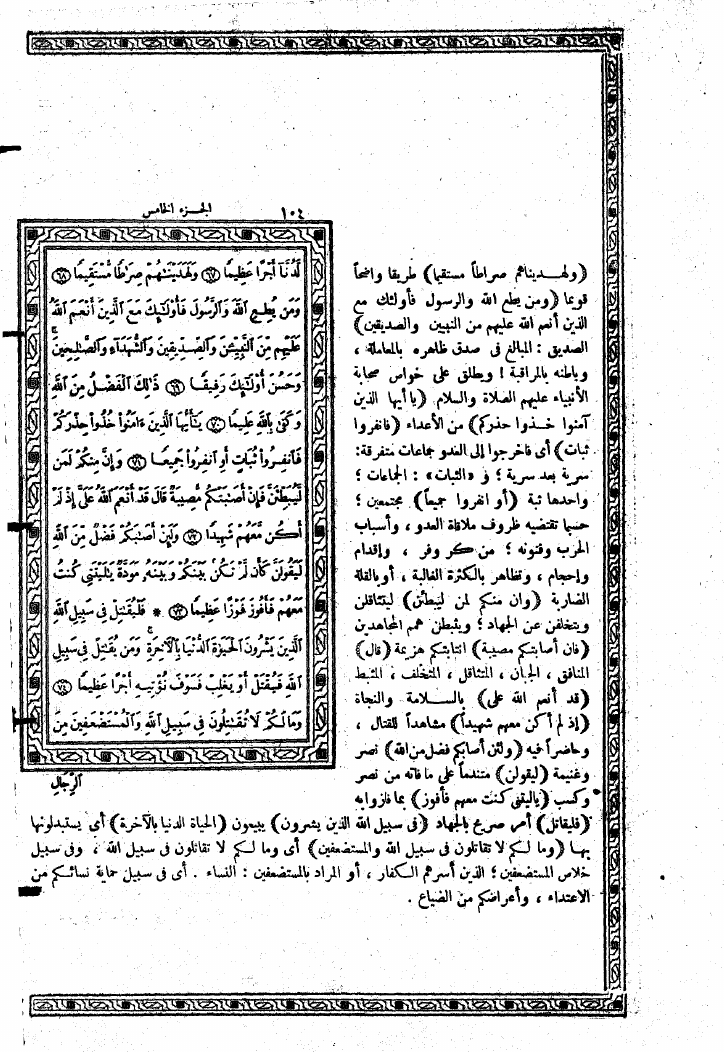 ١٠٤
الجزء الخامس
لَّدُنَّآ أَجْرًا عَظِيمًا ۝٦٧ وَلَهَدَيْنَٰهُمْ صِرَٰطًا مُّسْتَقِيمًا ۝٦٨
وَمَن يُطِعِ ٱللَّهَ وَٱلرَّسُولَ فَأُو۟لَٰٓئِكَ مَعَ ٱلَّذِينَ أَنْعَمَ ٱللَّهُ
عَلَيْهِم مِّنَ ٱلنَّبِيِّـۧنَ وَٱلصِّدِّيقِينَ وَٱلشُّهَدَآءِ وَٱلصَّٰلِحِينَ ۚ
وَحَسُنَ أُو۟لَٰٓئِكَ رَفِيقًا ۝٦٩ ذَٰلِكَ ٱلْفَضْلُ مِنَ ٱللَّهِ
وَكَفَىٰ بِٱللَّهِ عَلِيمًا ۝٧٠ يَٰٓأَيُّهَا ٱلَّذِينَ ءَامَنُوا۟ خُذُوا۟ حِذْرَكُمْ
فَٱنفِرُوا۟ ثُبَاتٍ أَوِ ٱنفِرُوا۟ جَمِيعًا ۝٧١ وَإِنَّ مِنكُمْ لَمَن
لَّيُبَطِّئَنَّ فَإِنْ أَصَٰبَتْكُم مُّصِيبَةٌ قَالَ قَدْ أَنْعَمَ ٱللَّهُ عَلَىَّ إِذْ لَمْ
أَكُن مَّعَهُمْ شَهِيدًا ۝٧٢ وَلَئِنْ أَصَٰبَكُمْ فَضْلٌ مِّنَ ٱللَّهِ
لَيَقُولَنَّ كَأَن لَّمْ تَكُنۢ بَيْنَكُمْ وَبَيْنَهُۥ مَوَدَّةٌ يَٰلَيْتَنِى كُنتُ
مَعَهُمْ فَأَفُوزَ فَوْزًا عَظِيمًا ۝٧٣ * فَلْيُقَٰتِلْ فِى سَبِيلِ ٱللَّهِ
ٱلَّذِينَ يَشْرُونَ ٱلْحَيَوٰةَ ٱلدُّنْيَا بِٱلْـَٔاخِرَةِ ۚ وَمَن يُقَٰتِلْ فِى سَبِيلِ
ٱللَّهِ فَيُقْتَلْ أَوْ يَغْلِبْ فَسَوْفَ نُؤْتِيهِ أَجْرًا عَظِيمًا ۝٧٤
وَمَا لَكُمْ لَا تُقَٰتِلُونَ فِى سَبِيلِ ٱللَّهِ وَٱلْمُسْتَضْعَفِينَ مِنَ
ٱلرِّجَالِ
(ولهديناهم صراطاً مستقيما) طريقا واضحاً
قويما (ومن يطع الله والرسول فأولئك مع
الذين أنعم الله عليهم من النبيين والصديقين)
الصديق : المبالغ فى صدق ظاهره بالمعاملة ،
وباطنه بالمراقبة ! ويطلق على خواص صحابة
الأنبياء عليهم الصلاة والسلام (يا أيها الذين
آمنوا خذوا حذركم) من الأعداء (فانفروا
ثبات) أى فاخرجوا إلى العدو جماعات متفرقة :
سرية بعد سرية ؛ و «الثبات» : الجماعات ؛
واحدها ثبة (أو انفروا جميعاً) مجتمعين ؛
حسبما تقتضيه ظروف ملاقاة العدو ، وأسباب
الحرب وفنونه ؛ من كر وفر ، وإقدام
وإحجام ، وتظاهر بالكثرة الغالبة ، أو بالقلة
الضاربة (وان منكم لمن ليبطئن) ليتثاقلن
ويتخلفن عن الجهاد ؛ ويثبطن همم المجاهدين
(فان أصابتكم مصيبة) انتابتكم هزيمة (قال)
المنافق ، الجبان ، المتثاقل ، المتخلف ، المثبط
(قد أنعم الله على) بالسلامة والنجاة
(إذ لم أكن معهم شهيداً) مشاهداً للقتال ،
وحاضراً فيه (ولئن أصابكم فضل من الله) نصر
وغنيمة (ليقولن) متندماً على ما فاته من نصر
وكسب (ياليتنى كنت معهم فأفوز) بما فازوا به
(فليقاتل) أمر صريح بالجهاد (فى سبيل الله الذين يشرون) يبيعون (الحياة الدنيا بالآخرة) أى يستبدلونها
بها (وما لكم لا تقاتلون فى سبيل الله والمستضعفين) أى وما لكم لا تقاتلون فى سبيل الله ، وفى سبيل
خلاص المستضعفين ؛ الذين أسرهم الكفار ، أو المراد بالمستضعفين : النساء . أى فى سبيل حماية نسائكم من
الاعتداء ، وأعراضكم من الضياع .